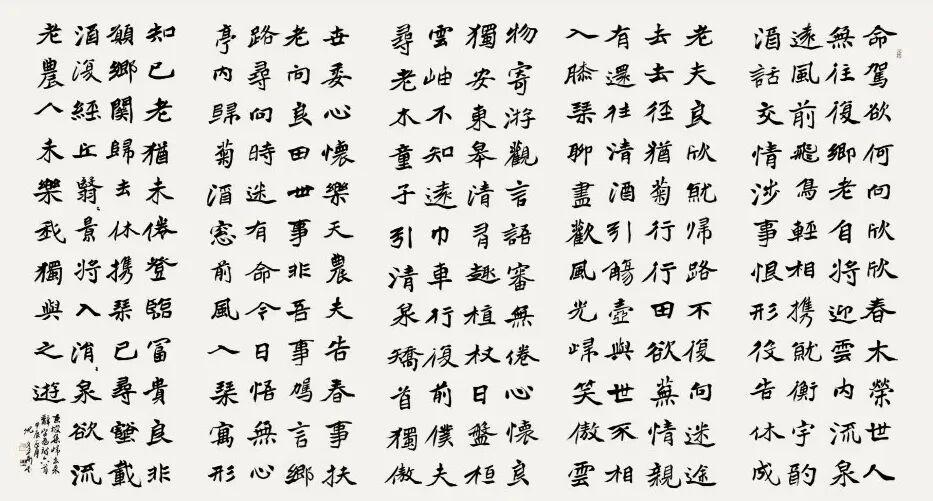 命駕欲何向欣欣春木榮世人
無往復鄉老自將迎雲內流泉
遠風前飛鳥輕相携就衡宇酌
酒話交情涉事恨形役告休成
老夫良欣就歸路不復向迷途
去去徑猶菊行行田欲蕪情親
有還往清酒引觴壺與世不相
入膝琴聊盡歡風光歸笑傲雲
物寄游觀言語審無倦心懷良
獨安東皋清有趣植杖日盤桓
雲岫不知遠巾車行復前僕夫
尋老木童子引清泉矯首獨傲
世委心懷樂天農夫告春事扶
老向良田世事非吾事駕言鄉
路尋向時迷有命今日悟無心
亭內歸菊酒窓前風入琴寓形
知已老猶未倦登臨富貴良非
願鄉關歸去休携琴已尋壑載
酒復經丘翳〻景將入涓〻泉欲流
老農人未樂我獨與之遊
東坡集歸去來
辭字為詩六首